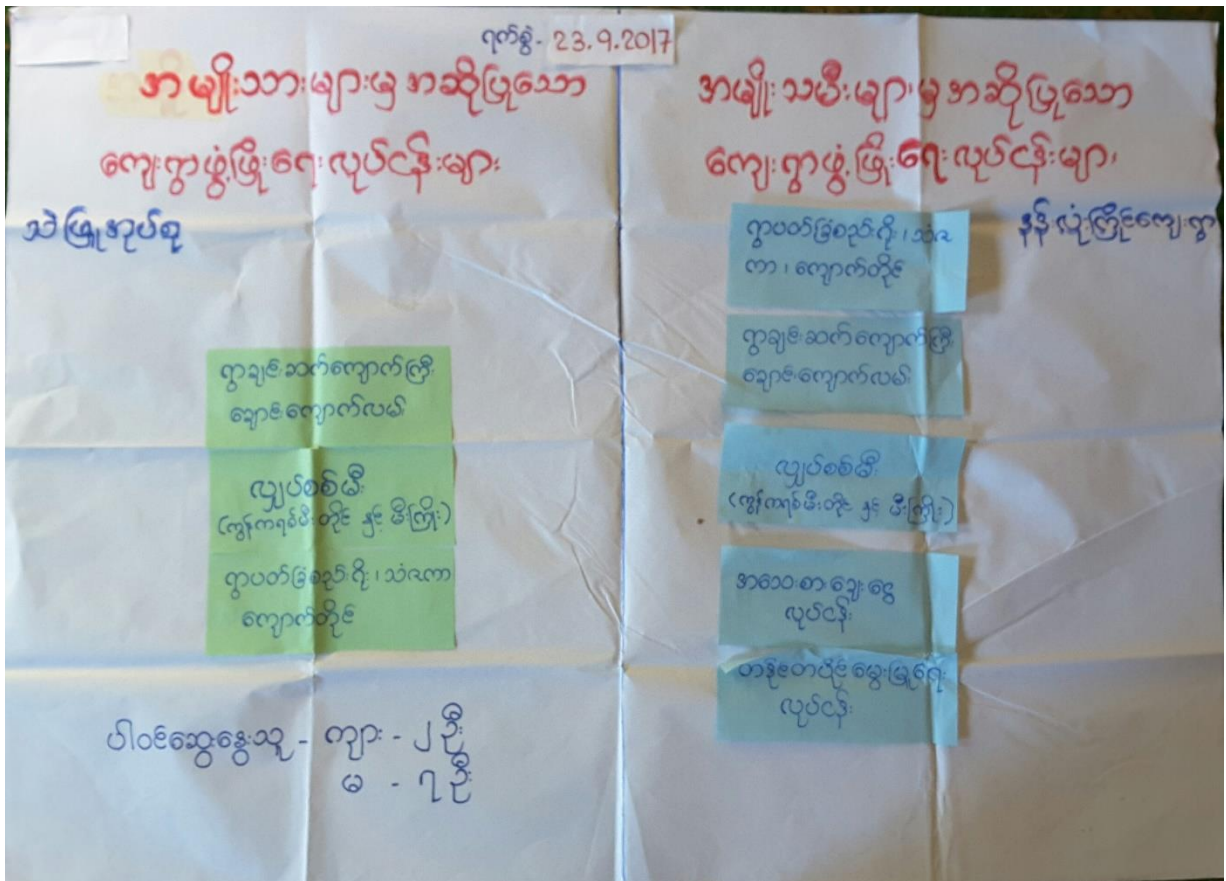 ရက်စွဲ - 23.9.2017
အမျိုးသားများမှအဆိုပြုသော
ကျေးရွာဖွံ့ဖြိုးရေးလုပ်ငန်းများ
သဲဖြူအုပ်စု
ရွာချင်းဆက်ကျောက်ကြီး
ချောင်းကျောက်လမ်း
လျှပ်စစ်မီး
(ကွန်ကရစ်မီးတိုင် နှင့် မီးကြိုး)
ရွာပတ်ခြံစည်းရိုး၊သံဇကာ
ကျောက်တိုင်
ပါဝင်ဆွေးနွေးသူ - ကျား - ၂ဦး
မ - ၇ဦး
အမျိုးသမီးများမှအဆိုပြုသော
ကျေးရွာဖွံ့ဖြိုးရေးလုပ်ငန်းများ
နန်းလုံးကြိုင်ကျေးရွာ
ရွာပတ်ခြံစည်းရိုး၊သံဇ
ကာ၊ကျောက်တိုင်
ရွာချင်းဆက်ကျောက်ကြီး
ချောင်းကျောက်လမ်း
လျှပ်စစ်မီး
(ကွန်ကရစ်မီးတိုင် နှင့် မီးကြိုး)
အသေးစားချေးငွေ
လုပ်ငန်း
တနိုင်တပိုင်မွေးမြူရေး
လုပ်ငန်း